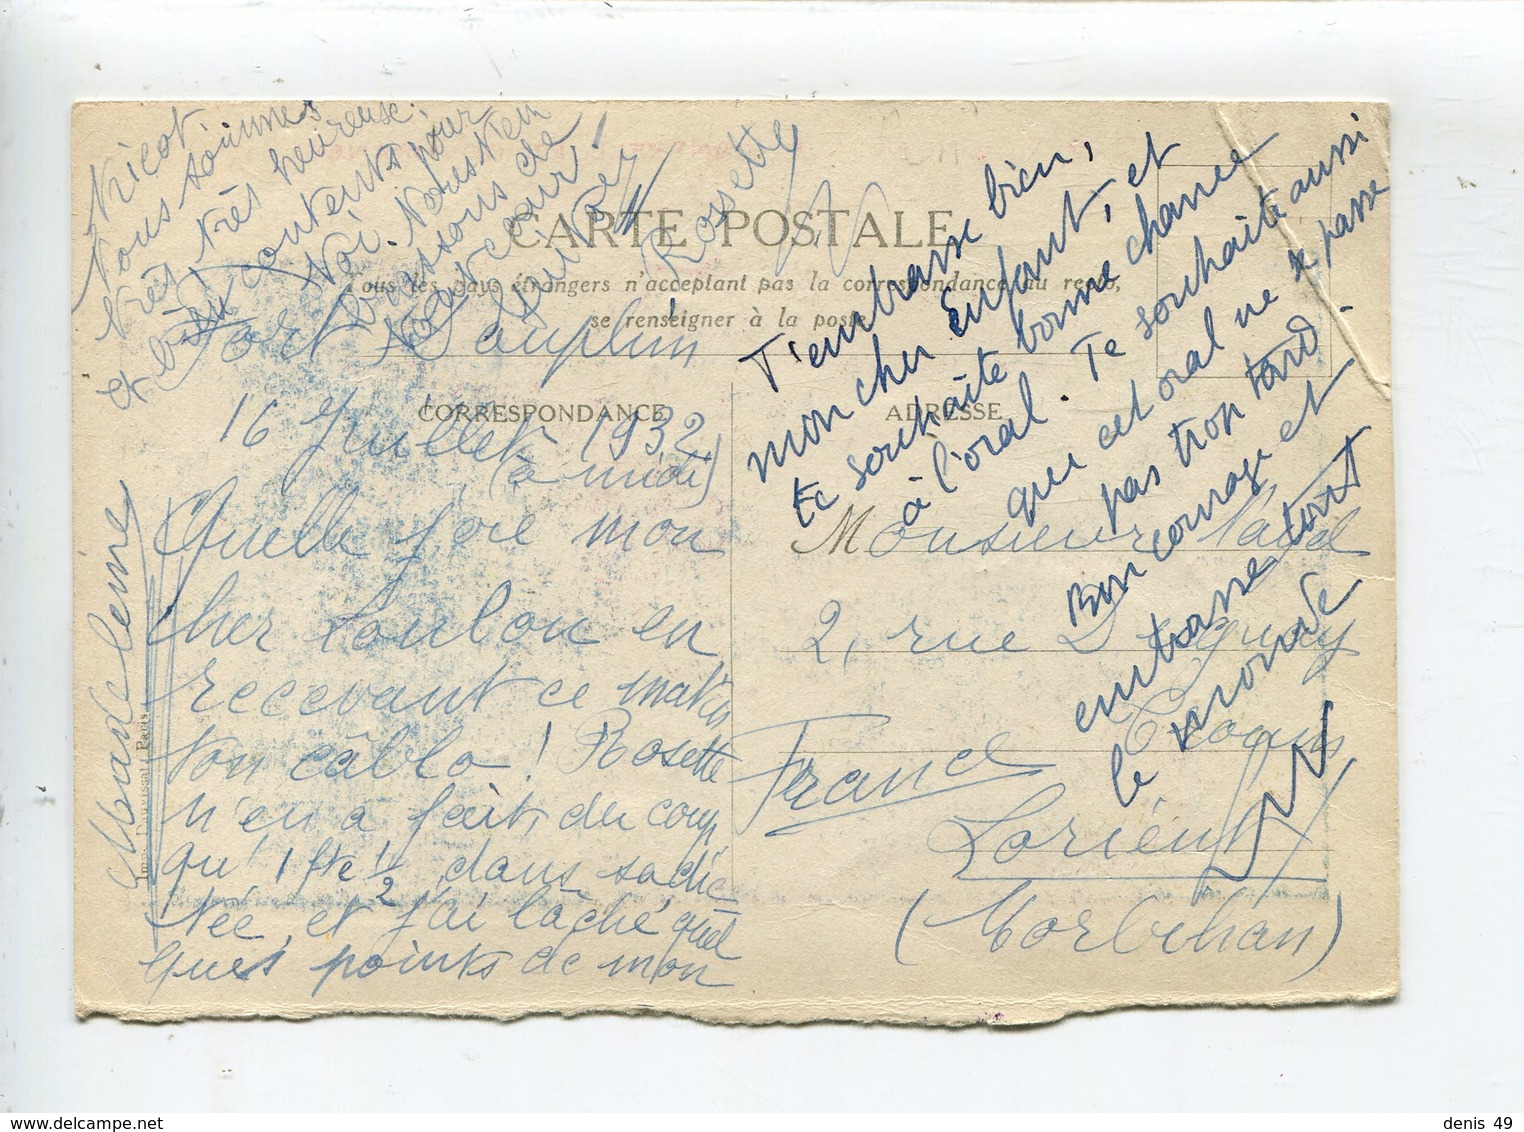 CARTE POSTALE
Tous les pays étrangers n'acceptent pas la correspondance au recto,
se renseigner à la poste.
CORRESPONDANCE
ADRESSE
Fort Dauplin
16 Juillet 1932
(à midi)
Quelle joie mon
cher Loulou en
recevant ce matin
ton câblo! Rosette
n'en a fait du coup
qu'1 hte 1/2 dans sa dic
tée, et j'ai lâché quel
ques points de mon
tricot.
Nous sommes
très très heureuse
et bien contents pour
toi. Nous t'em
brassons de
tout cœur
Rosette
Madeleine
T'embrasse bien,
mon cher Enfant, et
te souhaite bonne chance
à l'oral. Te souhaite aussi
que cet oral ne se passe
pas trop tard.
Bon courage et
embrasse tout
le monde
Monsieur
2, rue Duguay
Trouin
Lorient
(Morbihan)
France
Paris
denis 49